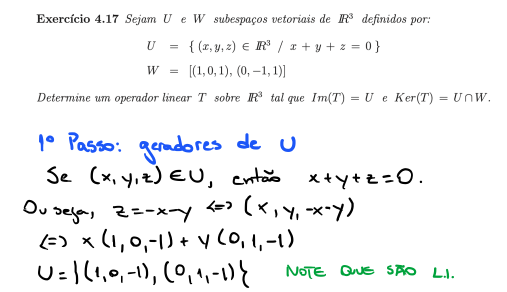 Exercício 4.17 Sejam U e W subespaços vetoriais de IR³ definidos por:
U = { (x, y, z) ∈ IR³ / x + y + z = 0 }
W = [(1, 0, 1), (0, −1, 1)]
Determine um operador linear T sobre IR³ tal que Im(T) = U e Ker(T) = U ∩ W.
1º Passo: geradores de U
Se (x, y, z) ∈ U, então x+y+z=0.
Ou seja, z=-x-y <=> (x, y, -x-y)
<=> x(1,0,-1) + y(0,1,-1)
U = {(1,0,-1), (0,1,-1)} NOTE QUE SÃO L.I.